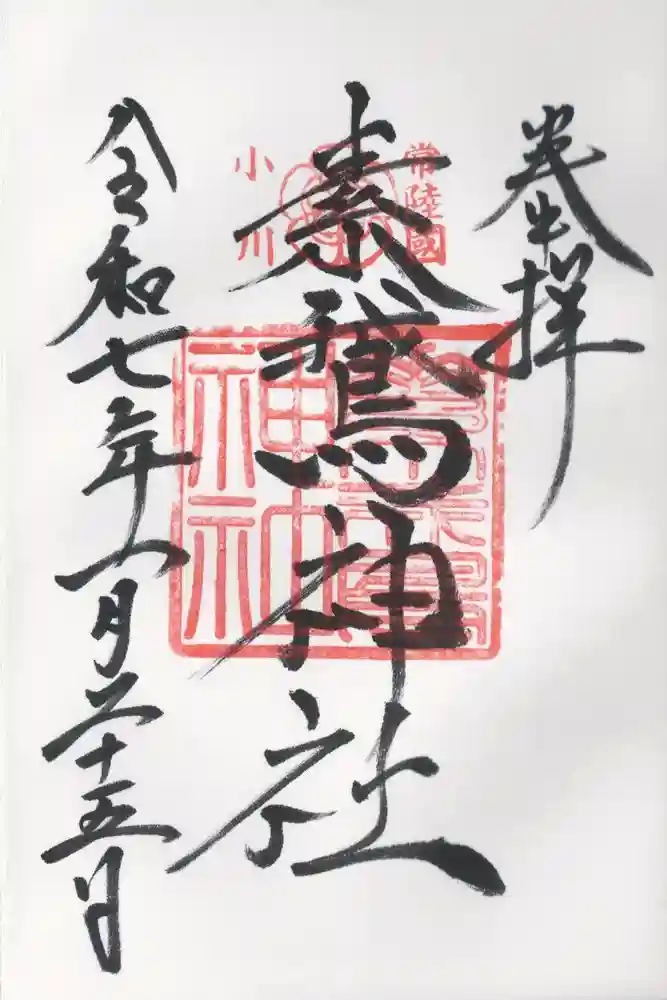 奉拝
常陸國
小川
素鵞神社
神社
令和七年八月二十五日